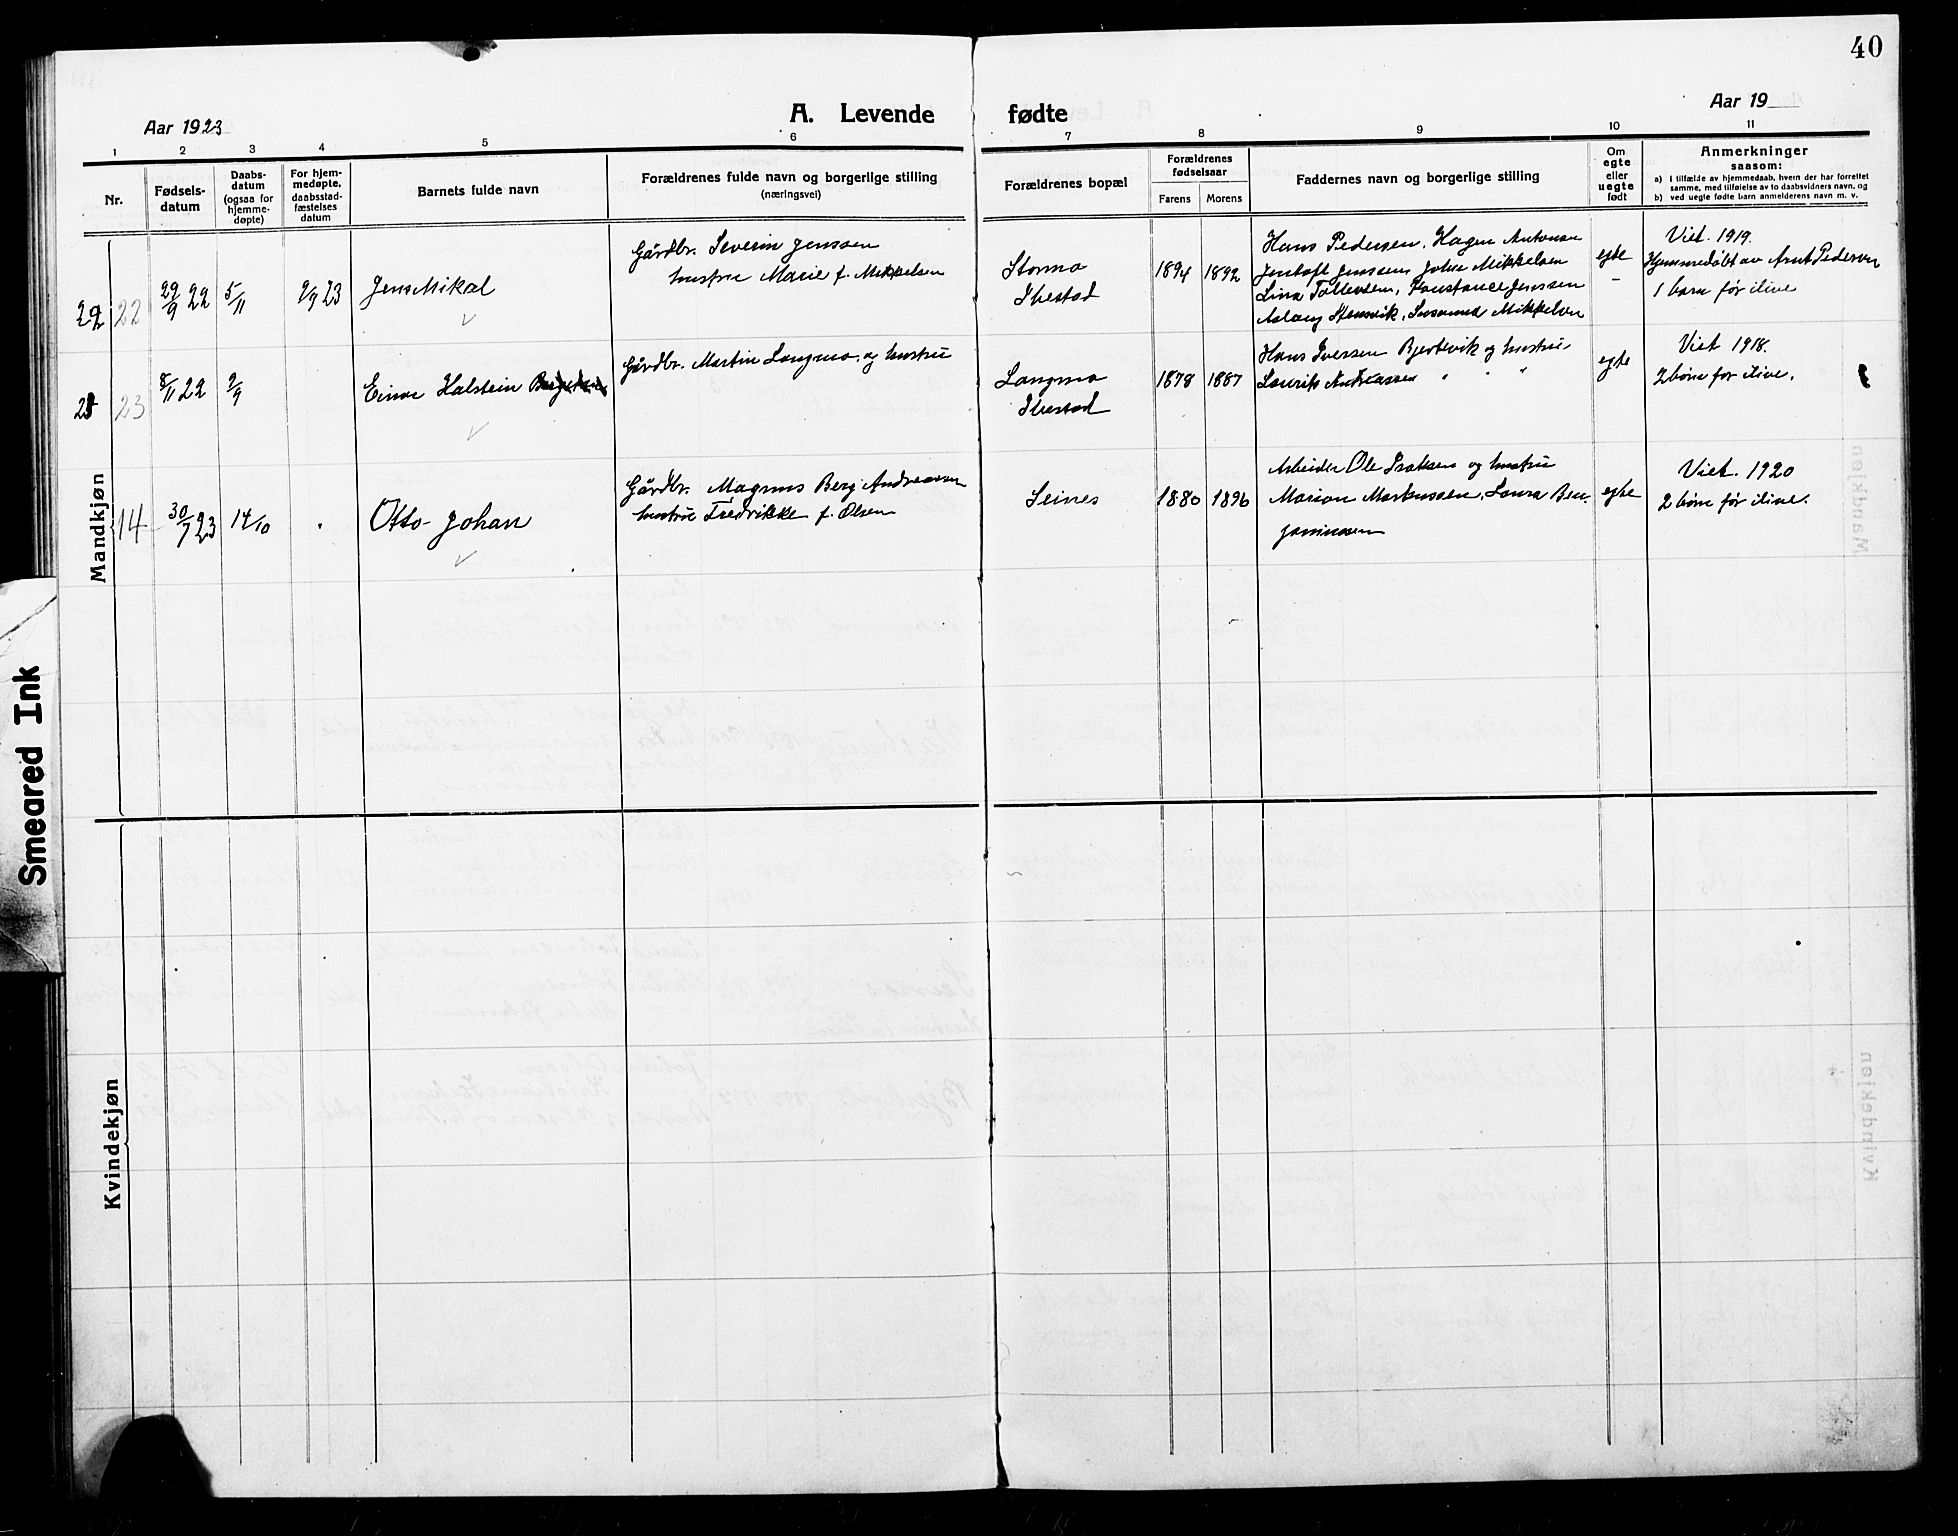 40
Aar 1923
A. Levende fødte
Aar 19
1 2 3 4 5 6 7 8 9 10 11
Nr.
Fødsels-
datum
Daabs-
datum
(ogsaa for
hjemme-
døpte)
For hjem-
medøpte,
daabsstad-
fæstelses
datum
Barnets fulde navn
Forældrenes fulde navn og borgerlige stilling
(næringsvei)
Forældrenes bopæl
Forældrenes
fødselsaar
Farens Morens
Faddernes navn og borgerlige stilling
Om
egte
eller
uegte
født
Anmerkninger
saasom:
a) i tilfælde av hjemmedaab, hvem der har forrettet
samme, med tilføielse av to daabsvidners navn, og
b) ved uegte fødte barn anmelderens navn m. v.
Mandkjøn
22 22
29/9 22
5/11
9/9 23
Jens Mikal
Gårdbr. Severin Jenssen
hustru Marie f. Mikkelsen
Stormo
Ibestad
1894 1892
Hans Pedersen, Hagen Antonsen
Jentoft Jenssen, Johs Mikkelsen
Lina Tollevsen, Konstance Jenssen
Aslaug Stensvik, Susanna Mikkelsen
egte
Viet. 1919.
Hjemmedøbt av Arnt Pedersen
1 barn før ilive
23
8/11 22
9/9
Einar Halstein
Gårdbr. Martin Langmo og hustru
Langmo
Ibestad
1878 1887
Hans Iversen Bjerkvik og hustru
Laurits Andreassen " " "
egte
Viet 1918.
2 børn før ilive.
14
30/7 23
14/10
Otto Johan
Gårdbr. Magnus Berg Andreassen
hustru Fredrikke f. Olsen
Seines
1880 1896
Arbeider Ole Isaksen og hustru
Marion Markussen, Laura Ben-
jaminsen
egte
Viet. 1920
2 børn før ilive.
Kvindekjøn
Smeared Ink